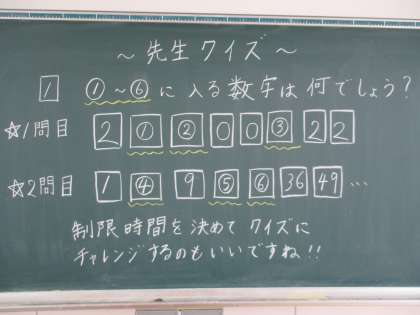 ～先生クイズ～
1 ①～⑥に入る数字は何でしょう？
☆1問目 2 ① ② 0 0 ③ 2 2
☆2問目 1 ④ 9 ⑤ ⑥ 36 49 …
制限時間を決めてクイズに
チャレンジするのもいいですね!!